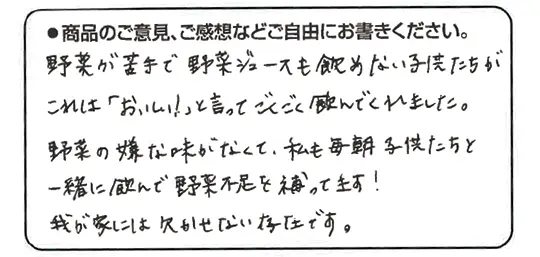 ●商品のご意見、ご感想などご自由にお書きください。
野菜が苦手で野菜ジュースも飲めない子供たちが
これは「おいしい!」と言ってごくごく飲んでくれました。
野菜の嫌な味がなくて、私も毎朝子供たちと
一緒に飲んで野菜不足を補ってます!
我が家には欠かせない存在です。